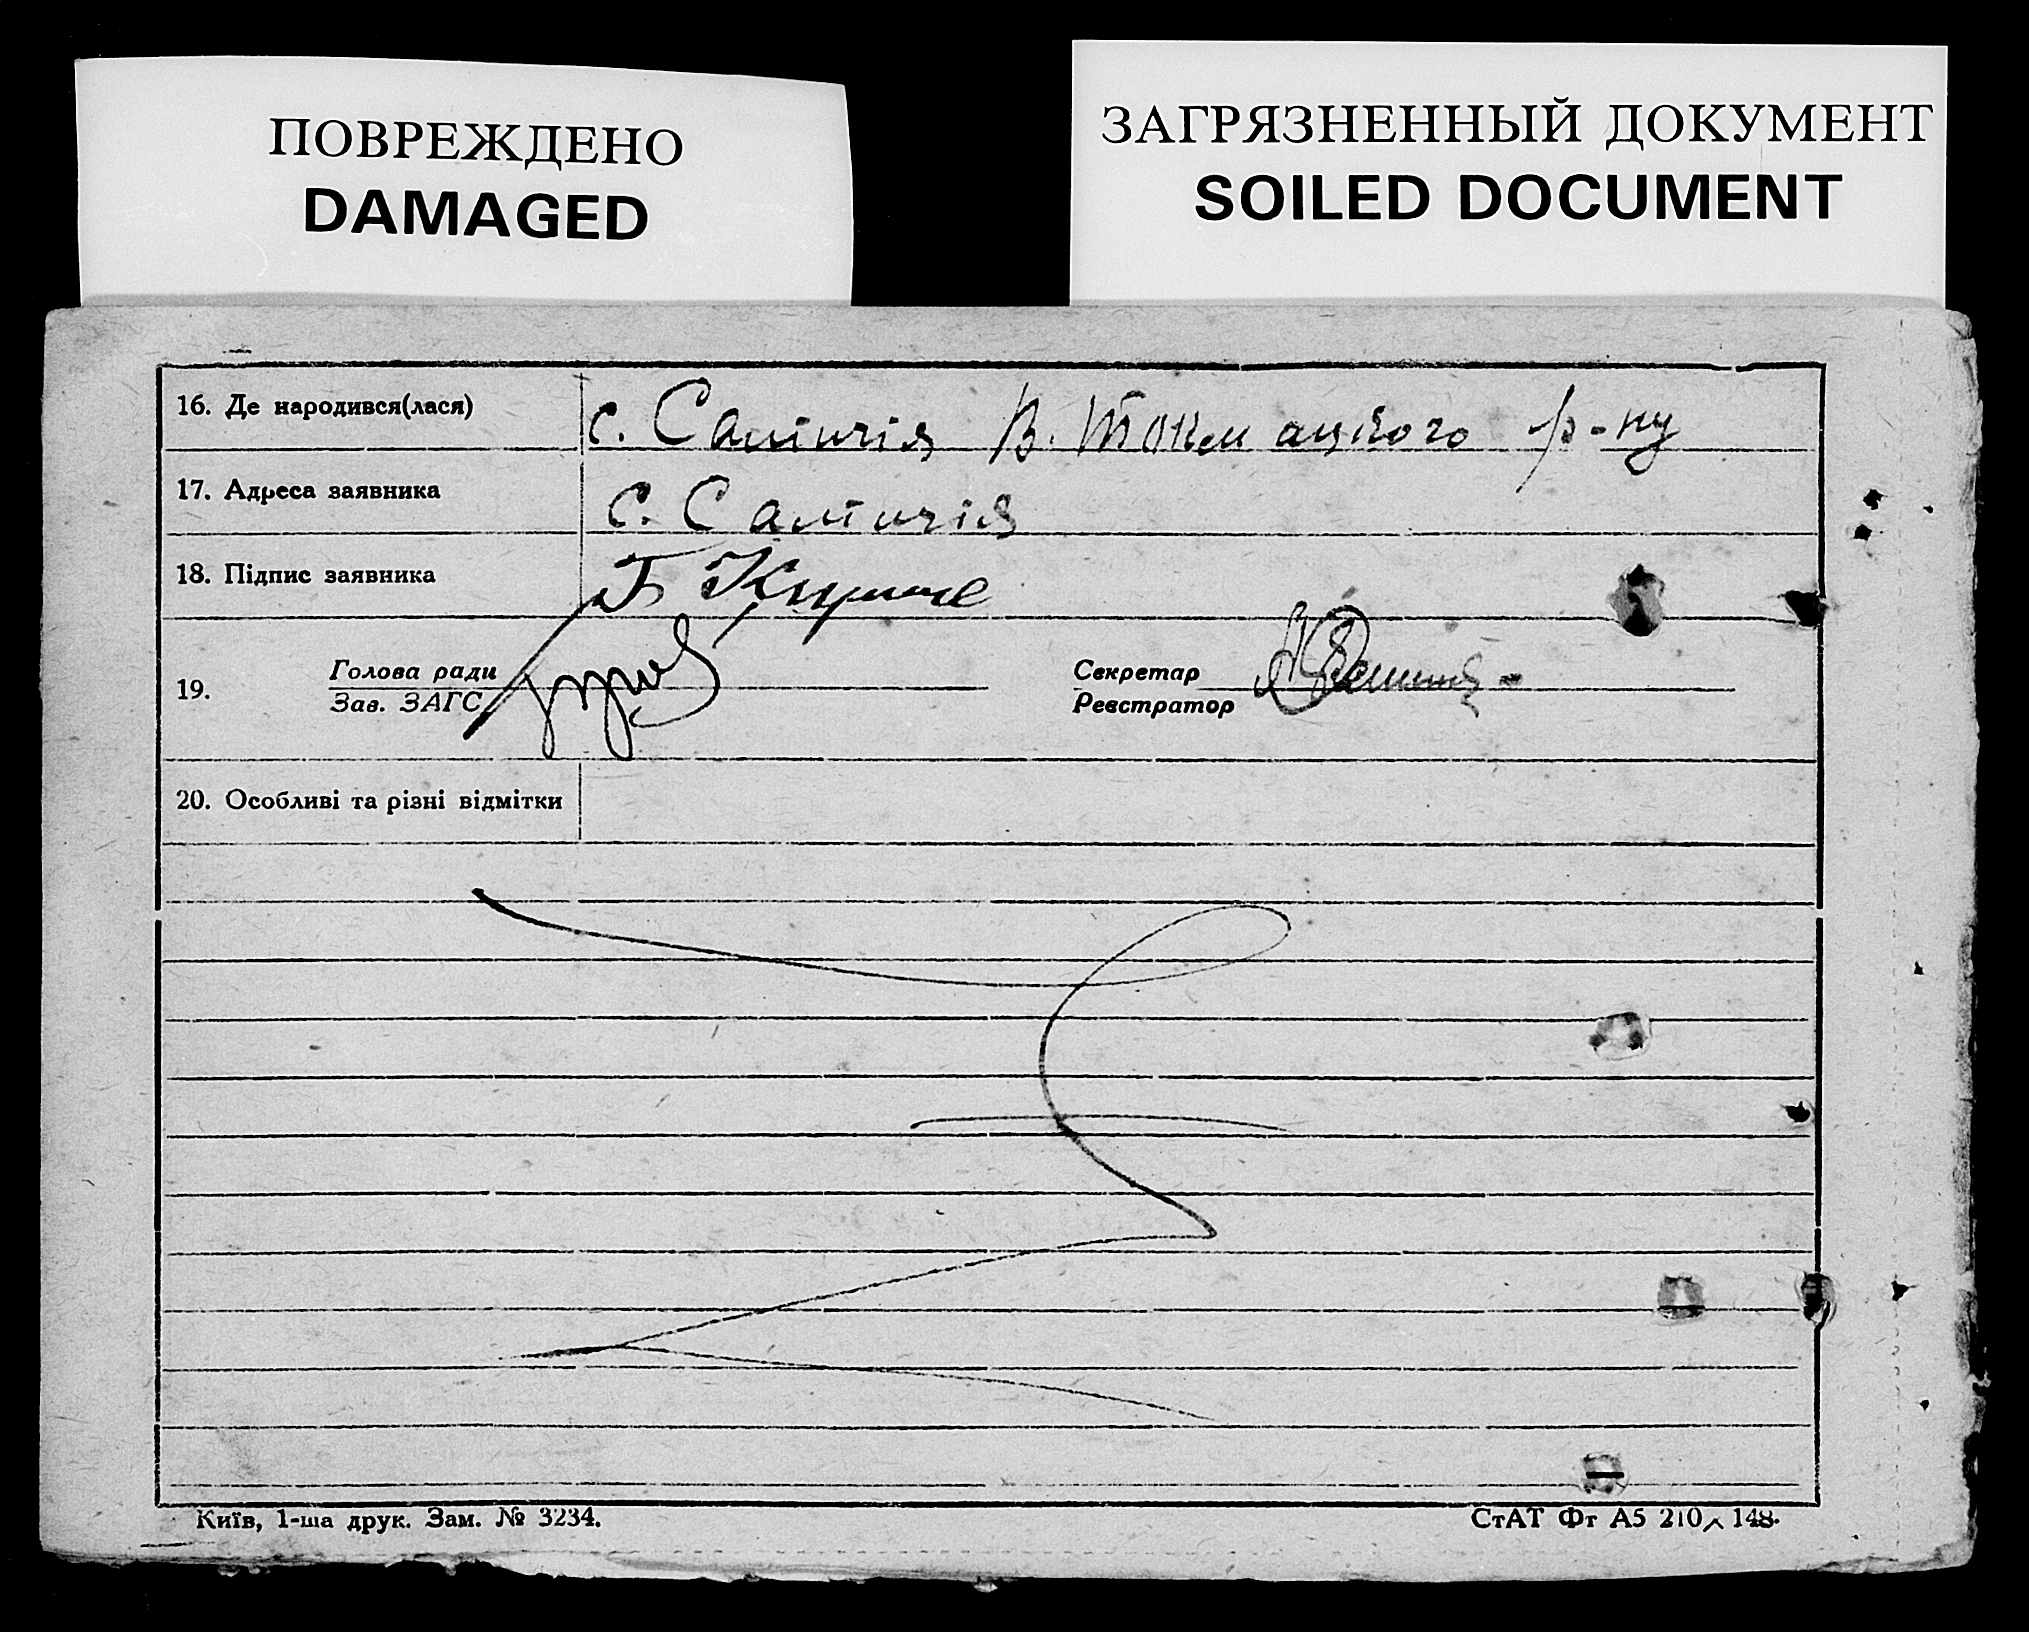 ПОВРЕЖДЕНО
DAMAGED
ЗАГРЯЗНЕННЫЙ ДОКУМЕНТ
SOILED DOCUMENT
16. Де народився(лася) с. Салтичія В. Токмацького р-ну
17. Адреса заявника с. Салтичія
18. Підпис заявника
19. Голова ради Секретар
Зав. ЗАГС Реєстратор
20. Особливі та різні відмітки
Київ, 1-ша друк. Зам. № 3234. СтАТ Фт А5 210 × 148.